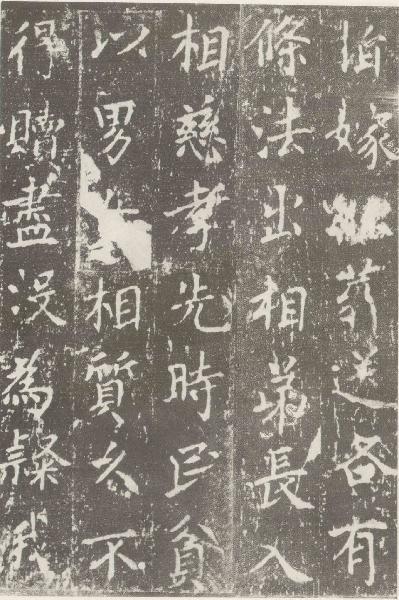 指嫁葬送各有
條法出相弟長入
相慈孝先時民貧
以男女相質久不
得贖盡没為隸我